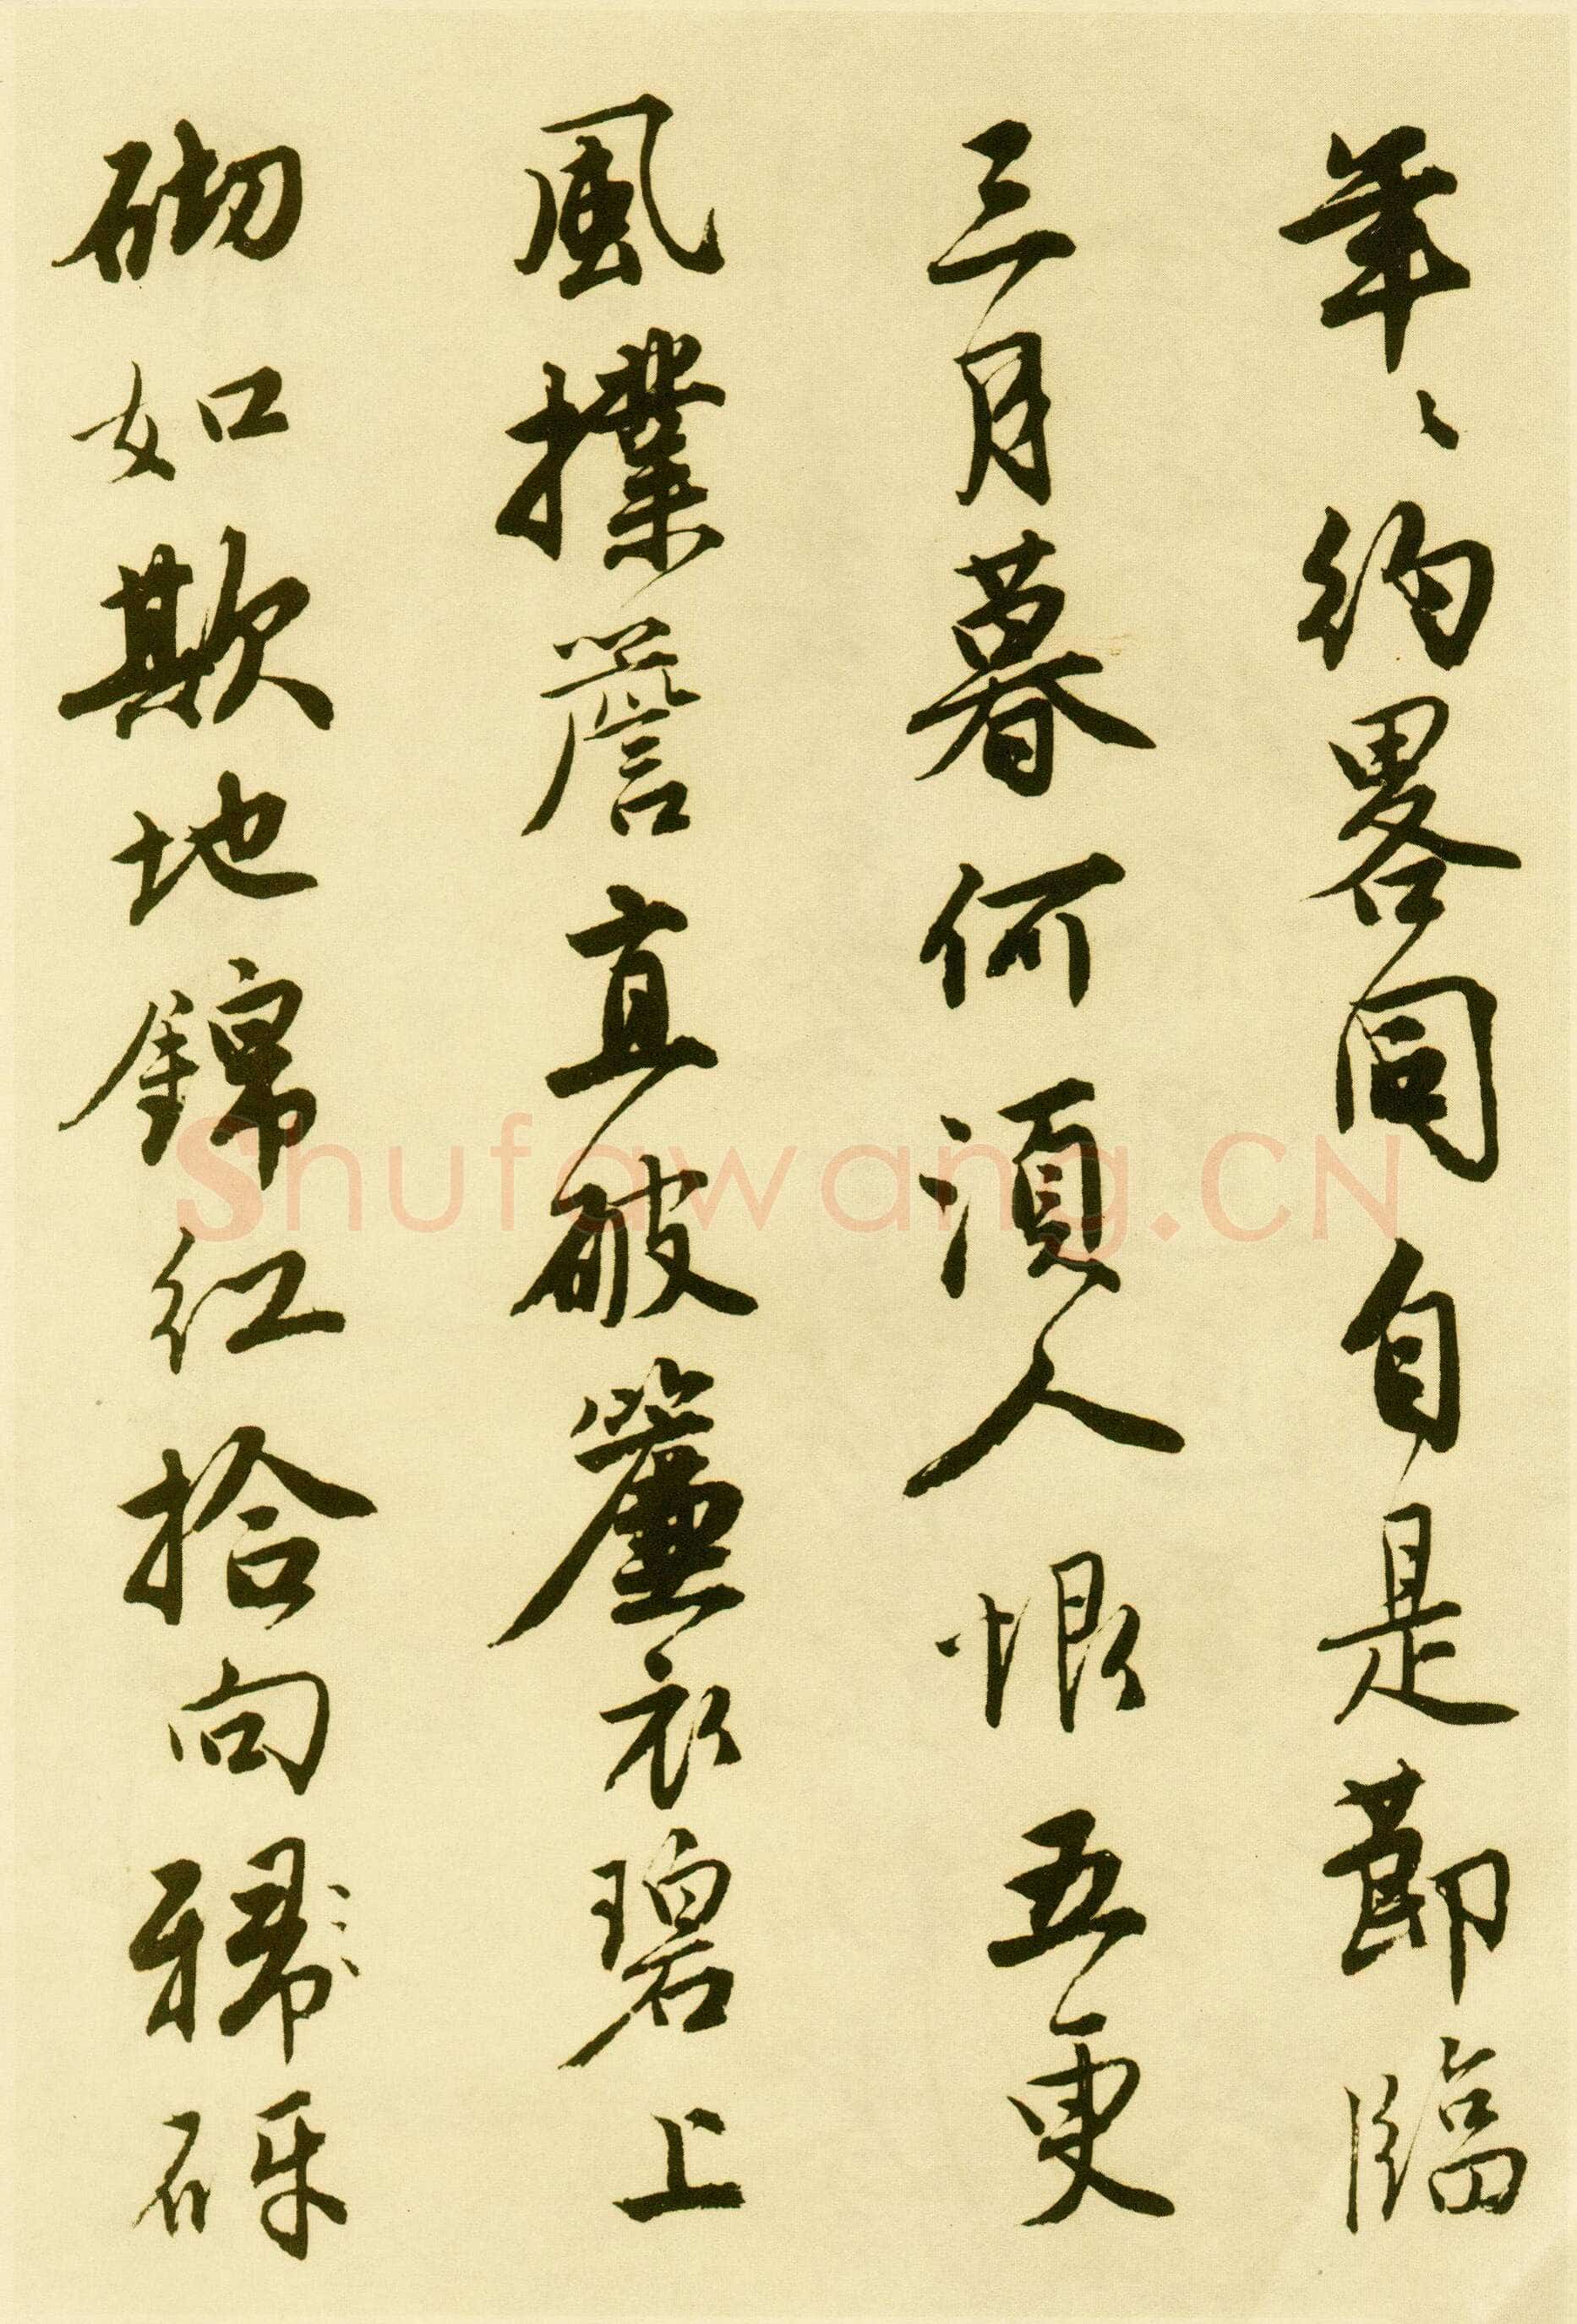 年々約畧同自是節臨
三月暮何須人恨五更
風撲簷直破簾衣碧上
砌如欺地錦紅拾向歸砑
Shufawang.CN